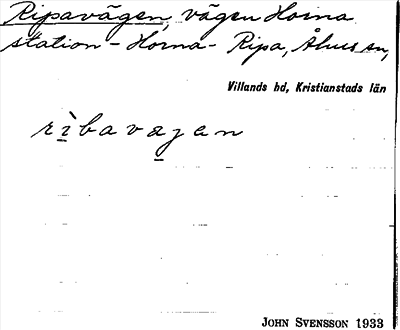 Ripavägen, vägen Horna
station - Horna - Ripa, Åhus sn,
Villands hd, Kristianstads län
rìbavagen
JOHN SVENSSON 1933